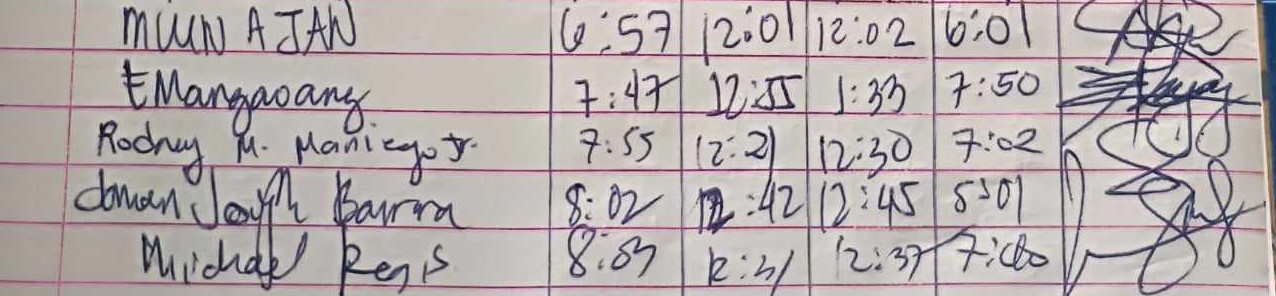 MUUN AJAN 6:57 12:01 12:02 6:01
EMangaoang 7:47 12:55 1:33 7:50
Rodney M. Maniego Jr. 7:55 12:21 12:30 7:02
Joseph Barrra 8:02 12:42 12:45 5:01
Michael Regis 12:31 12:37